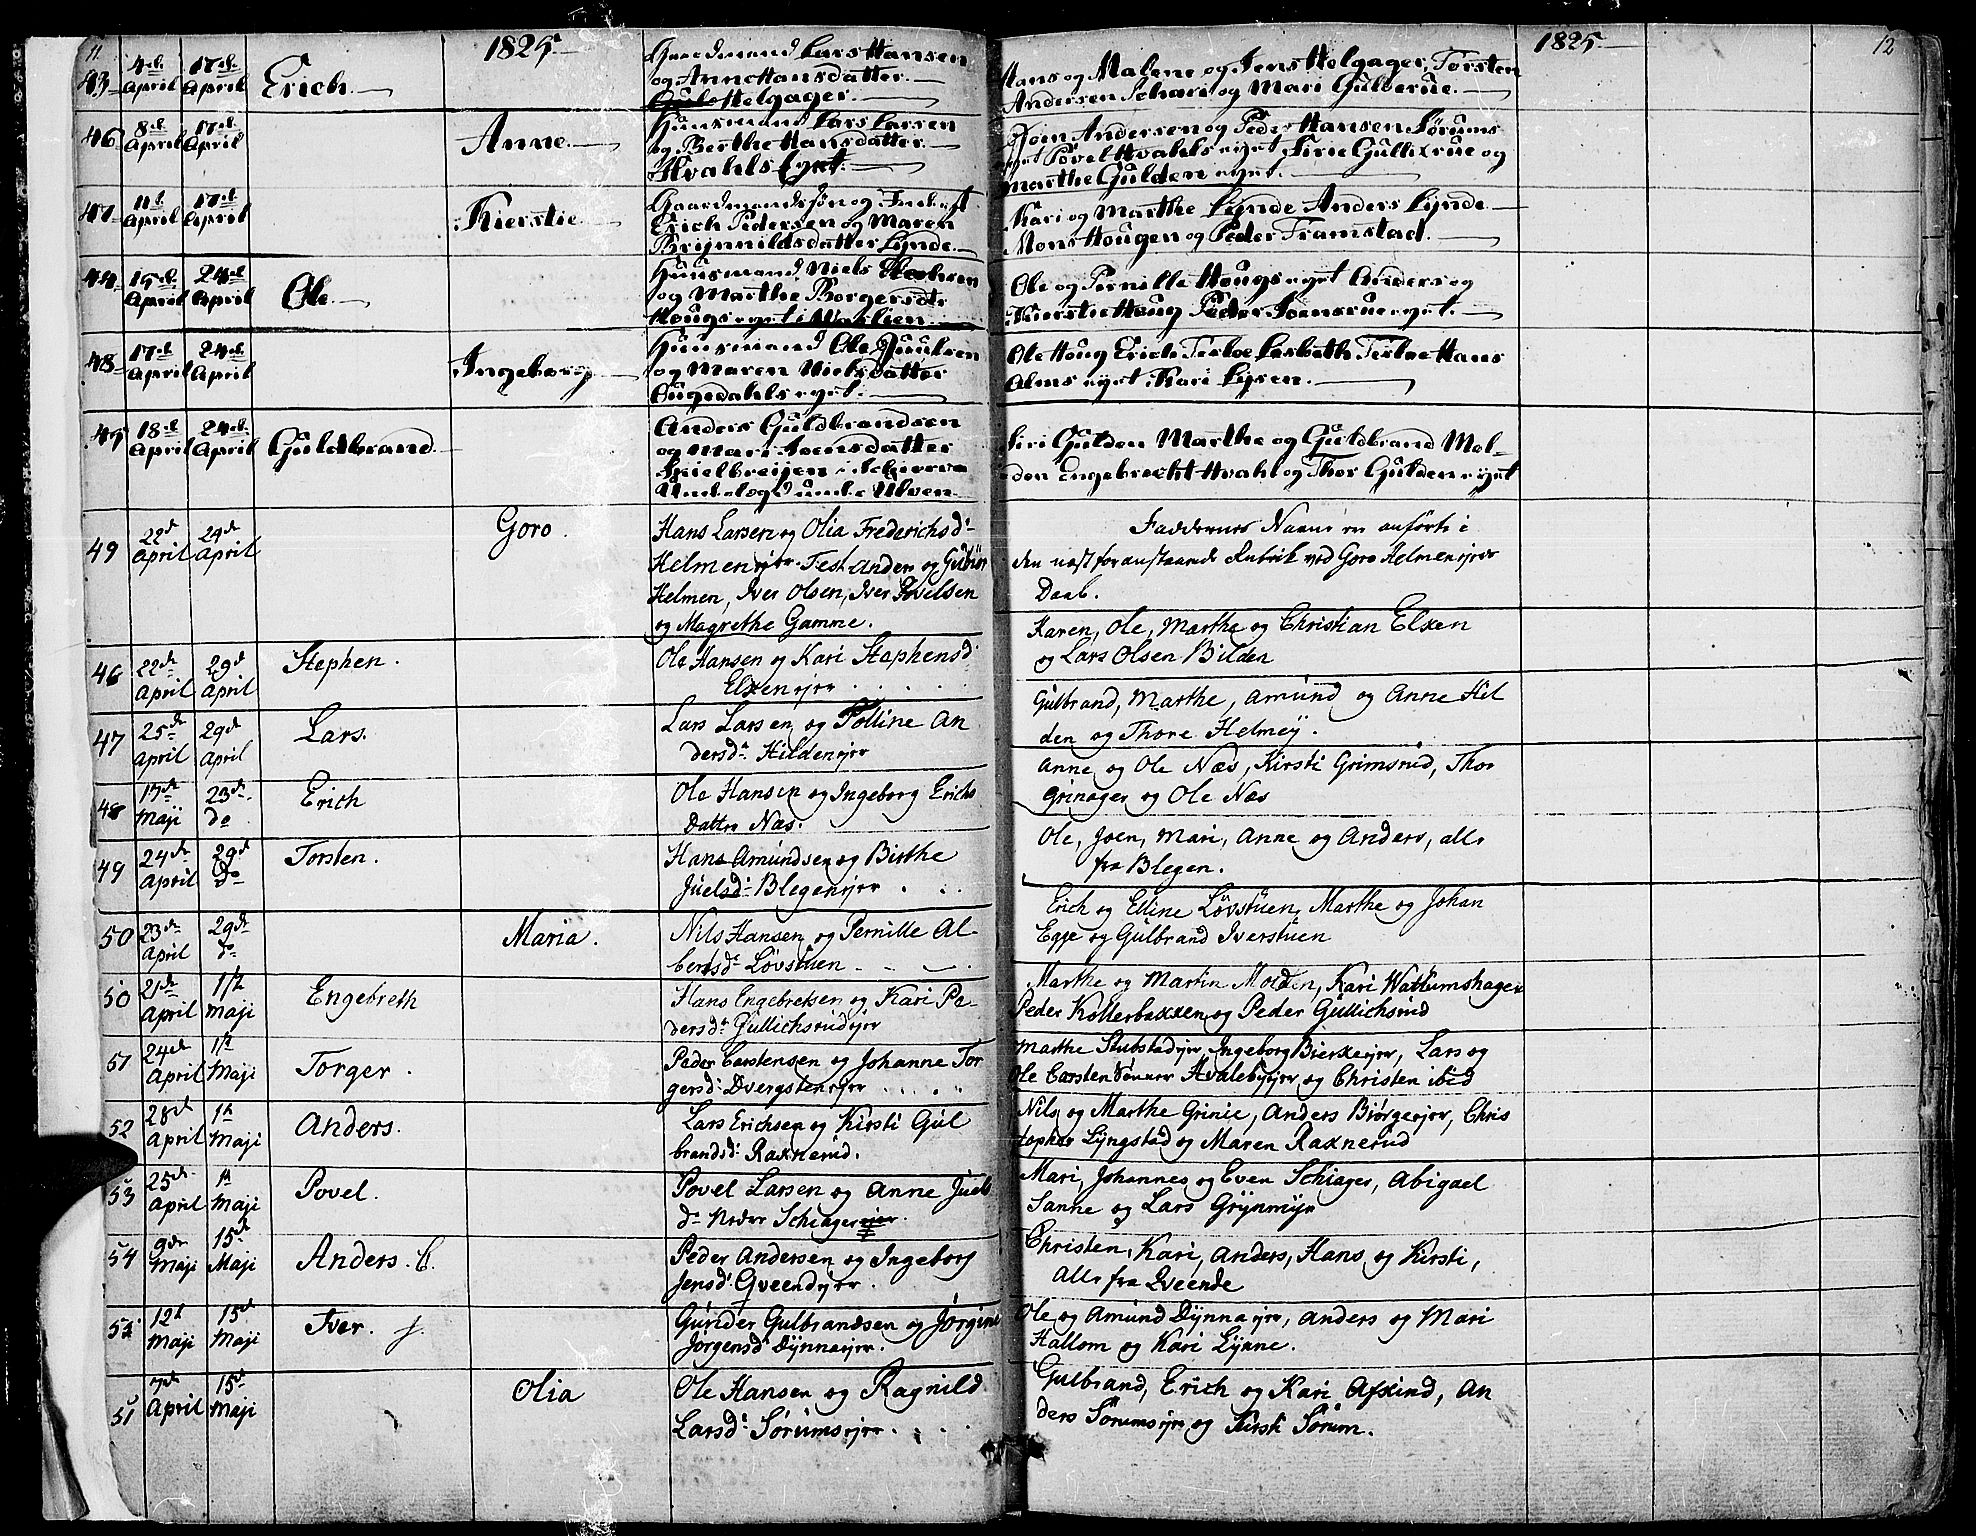 11
1825
1825
12
43 4de April 17de April Erich
Gaardmand Lars Hansen
og Anne Hansdatter
Helgager.
Hans og Malene og Jens Helgager, Torsten
Andersen Schari og Mari Gulderue.
46 8de April 17de April Anne
Huusmand Lars Larsen
og Berthe Hansdatter
Hvahls Eyet.
Joen Andersen og Peder Hansen Sørums
eyet Povel Hvahls eyet Sirie Gullixrue og
Marthe Gulden eyet.
47 11te April 17de April Kierstie
Gaardmandssøn og Inderst
Erich Pedersen og Maren
Brynnildsdatter Lynde.
Kari og Marthe Lynde Anders Lynde
Mons Hougen og Peder Framstad.
44 15de April 24de April Ole
Huusmand Niels
og Marthe Borgersdtr
Hougs eyet i
Ole og Pernille Hougs eyet Anders og
Kierstie Houg Peder Joensrue eyet.
48 17de April 24de April Ingeborg
Huusmand Ole Juulsen
og Maren Nielsdatter
eyet.
Ole Houg Erich Tesloe Lisbeth Tesloe Hans
Alms eyet Kari Lysen.
45 18de April 24de April Guldbrand
Anders Guldbrandsen
og Mari Joensdatter
Skielbreijen i
under Ulven
Siri Gulden Marthe og Guldbrand Mol-
den Engebrecht Hvahl og Thor Gulden eyet
49 22de April 24de April Goro.
Hans Larsen og Olia Frederichsd:
Helmenejer. Test Anders og
Helmen, Iver Olsen, Iver Povelsen
og Magrethe Gamme.
Faddernes Navne er anførte i
den næst foranstaaende Rubrik ved Goro Helmenejer
Daab.
46 22de April 29d April Stephen.
Ole Hansen og Kari Stephensd:
Elxenejer
Karen, Ole, Marthe og Christian Elxen
og Lars Olsen Bilden
47 25de April 29d April Lars.
Lars Larsen og Polline An
dersd: Hildenejer
Gulbrand, Marthe, Amund og Anne Hil
den og Thore Helmey.
48 17de Maji 23de do Erich
Ole Hansen og Ingeborg Erichs
Datter Næs.
Anne og Ole Næs, Kirsti Grimsrud, Thor
Grinager og Ole Næs
49 24de April 29d do Torsten.
Hans Amundsen og Birthe
Juelsd: Blegenejer
Ole, Joen, Mari, Anne og Anders, alle
fra Blegen.
50 23de April 29de do Maria.
Nils Hansen og Pernille Al-
bertsd: Løvstuen
Erich og Elline Løvstuen, Marthe og Johan
Egge og Gulbrand Iverstuen
50 21de April 1ste Maji Engebreth
Hans Engebretsen og Kari Pe-
dersd: Gullichsrudejer
Marthe og Martin Molden, Kari Wattumshagen
Peder Kollerbakken og Peder Gullichsrud
51 24de April 1ste Maji Torger.
Peder Carstensen og Johanne Tor
gersd: Dvergstenejer
Marthe Stubstadejer, Ingeborg Bierkeejer, Lars og
Ole Carsten Sønner Hvalebyejer og Christen ibid
52 28d April 1ste Maji Anders.
Lars Erichsen og Kirsti Gul
brandsd: Raxnerud.
Nils og Marthe Grinie, Anders Biørgeejer, Chris
topher Lyngstad og Maren Raxnerud
53 25de April 1ste Maji Povel.
Povel Larsen og Anne Juels
d: Nedre Schiagerejer.
Mari, Johannes og Even Schiager, Abigael
Sanne og Lars Grynmyr
54 9de Maji 15d Maji Anders.
Peder Andersen og Ingeborg
Jensd: Qveendejer.
Christen, Kari, Anders, Hans og Kirsti,
alle fra Qveende
12t Maji 15d Maji Iver.
Gunder Gulbrandsen og Jørgine
Jørgensd: Dynnaejer.
Ole og Amund Dynnaejer, Anders og Mari
Hallom og Kari Lynne.
51 7de April 15d Maji Olia
Ole Hansen og Ragnild
Larsd: Sørumsejer.
Gulbrand, Erich og Kari Askind, An
ders Sørumsejer og Kirsti Sørum.